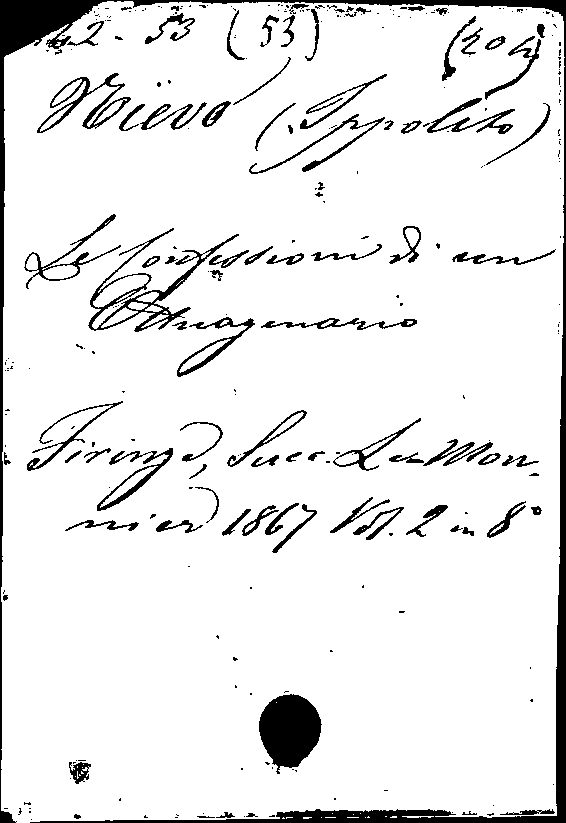 42 - 53 (53) (204)
Nïevo (Ippolito)
Le Confessioni di un
Ottuagenario
Firenze, Succ. Le Mon-
nier 1867 Vol. 2 in 8°